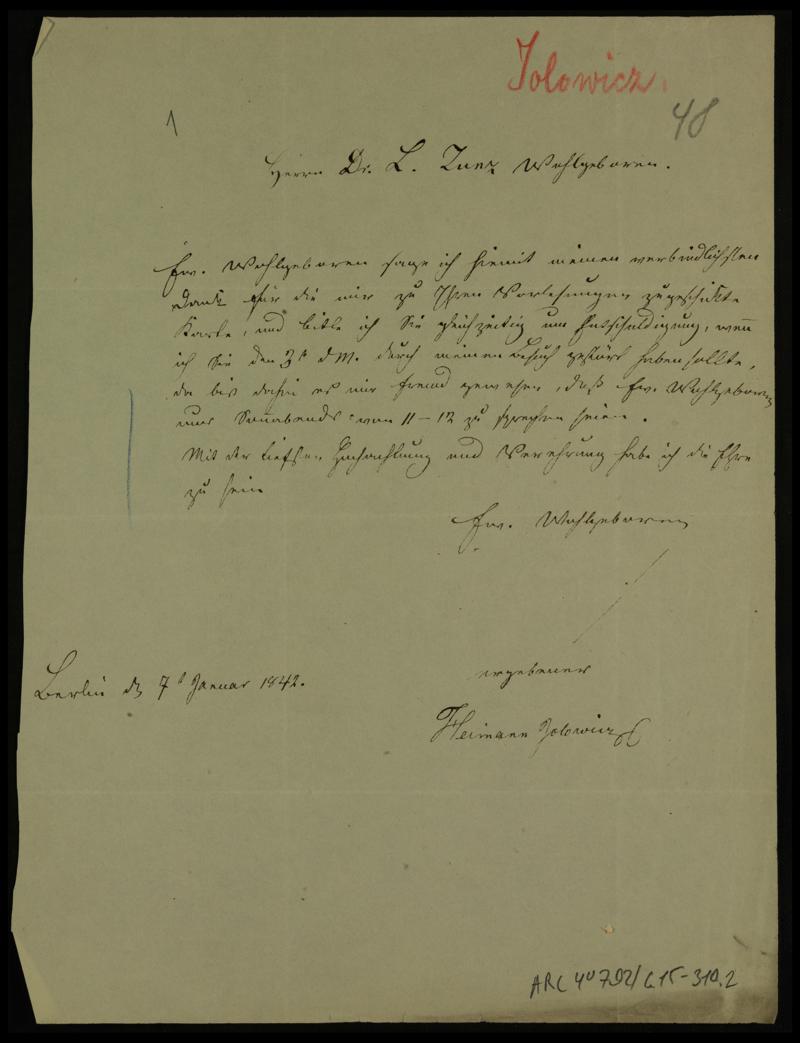 Jolowicz.
48
1
Herrn Dr. L. Zunz Wohlgeboren.
Ew. Wohlgeboren sage ich hiemit meinen verbindlichsten
Dank für die mir zu Ihren Vorlesungen zugeschickte
Karte, und bitte ich Sie gleichzeitig um Entschuldigung, wenn
ich Sie den 3t d M. durch meinen Besuch gestört haben sollte,
da bis dahin es mir fremd gewesen, daß Ew. Wohlgeboren
nur Sonnabends von 11-12 zu sprechen seien.
Mit der tiefsten Hochachtung und Verehrung habe ich die Ehre
zu sein
Ew. Wohlgeboren
ergebener
Berlin d 7t Januar 1842.
Heimann Jolowicz
ARC 4o 792/G15-310.2